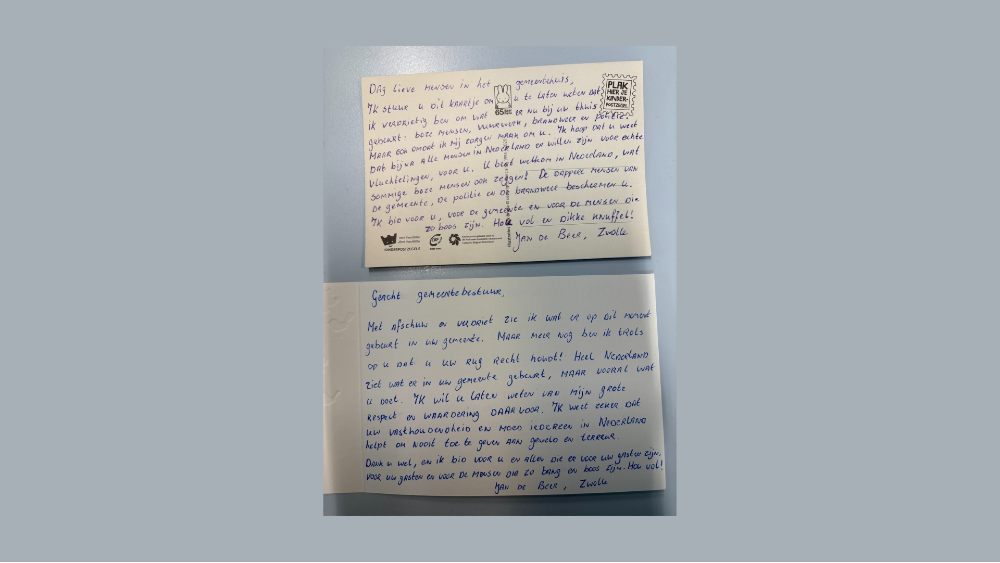 Dag lieve mensen in het gemeentehuis,
Ik stuur u dit kaartje om u te laten weten dat
ik verdrietig ben om wat er nu bij uw thuis
gebeurt: boze mensen, vuurwerk, brandweer en politie.
Maar ook omdat ik mij zorgen maak om u. Ik hoop dat u weet
dat bijna alle mensen in Nederland er willen zijn voor echte
vluchtelingen, voor u. U bent welkom in Nederland, wat
sommige boze mensen ook zeggen! De dappere mensen van
de gemeente, de politie en de brandweer beschermen u.
Ik bid voor u, voor de gemeente en voor de mensen die
zo boos zijn. Hou vol en dikke knuffel!
Jan de Beer, Zwolle
65
PLAK
HIER JE
KINDER-
POSTZEGEL
KINDERPOSTZEGELS
Geacht gemeentebestuur,
Met afschuw en verdriet zie ik wat er op dit moment
gebeurt in uw gemeente. Maar meer nog ben ik trots
op u dat u uw rug recht houdt! Heel Nederland
ziet wat er in uw gemeente gebeurt, maar vooral wat
u doet. Ik wil u laten weten van mijn grote
respect en waardering daarvoor. Ik weet zeker dat
uw vasthoudendheid en moed iedereen in Nederland
helpt om nooit toe te geven aan geweld en terreur.
Dank u wel, en ik bid voor u en allen die er voor uw gasten zijn,
voor uw gasten en voor de mensen die zo bang en boos zijn. Hou vol!
Jan de Beer, Zwolle